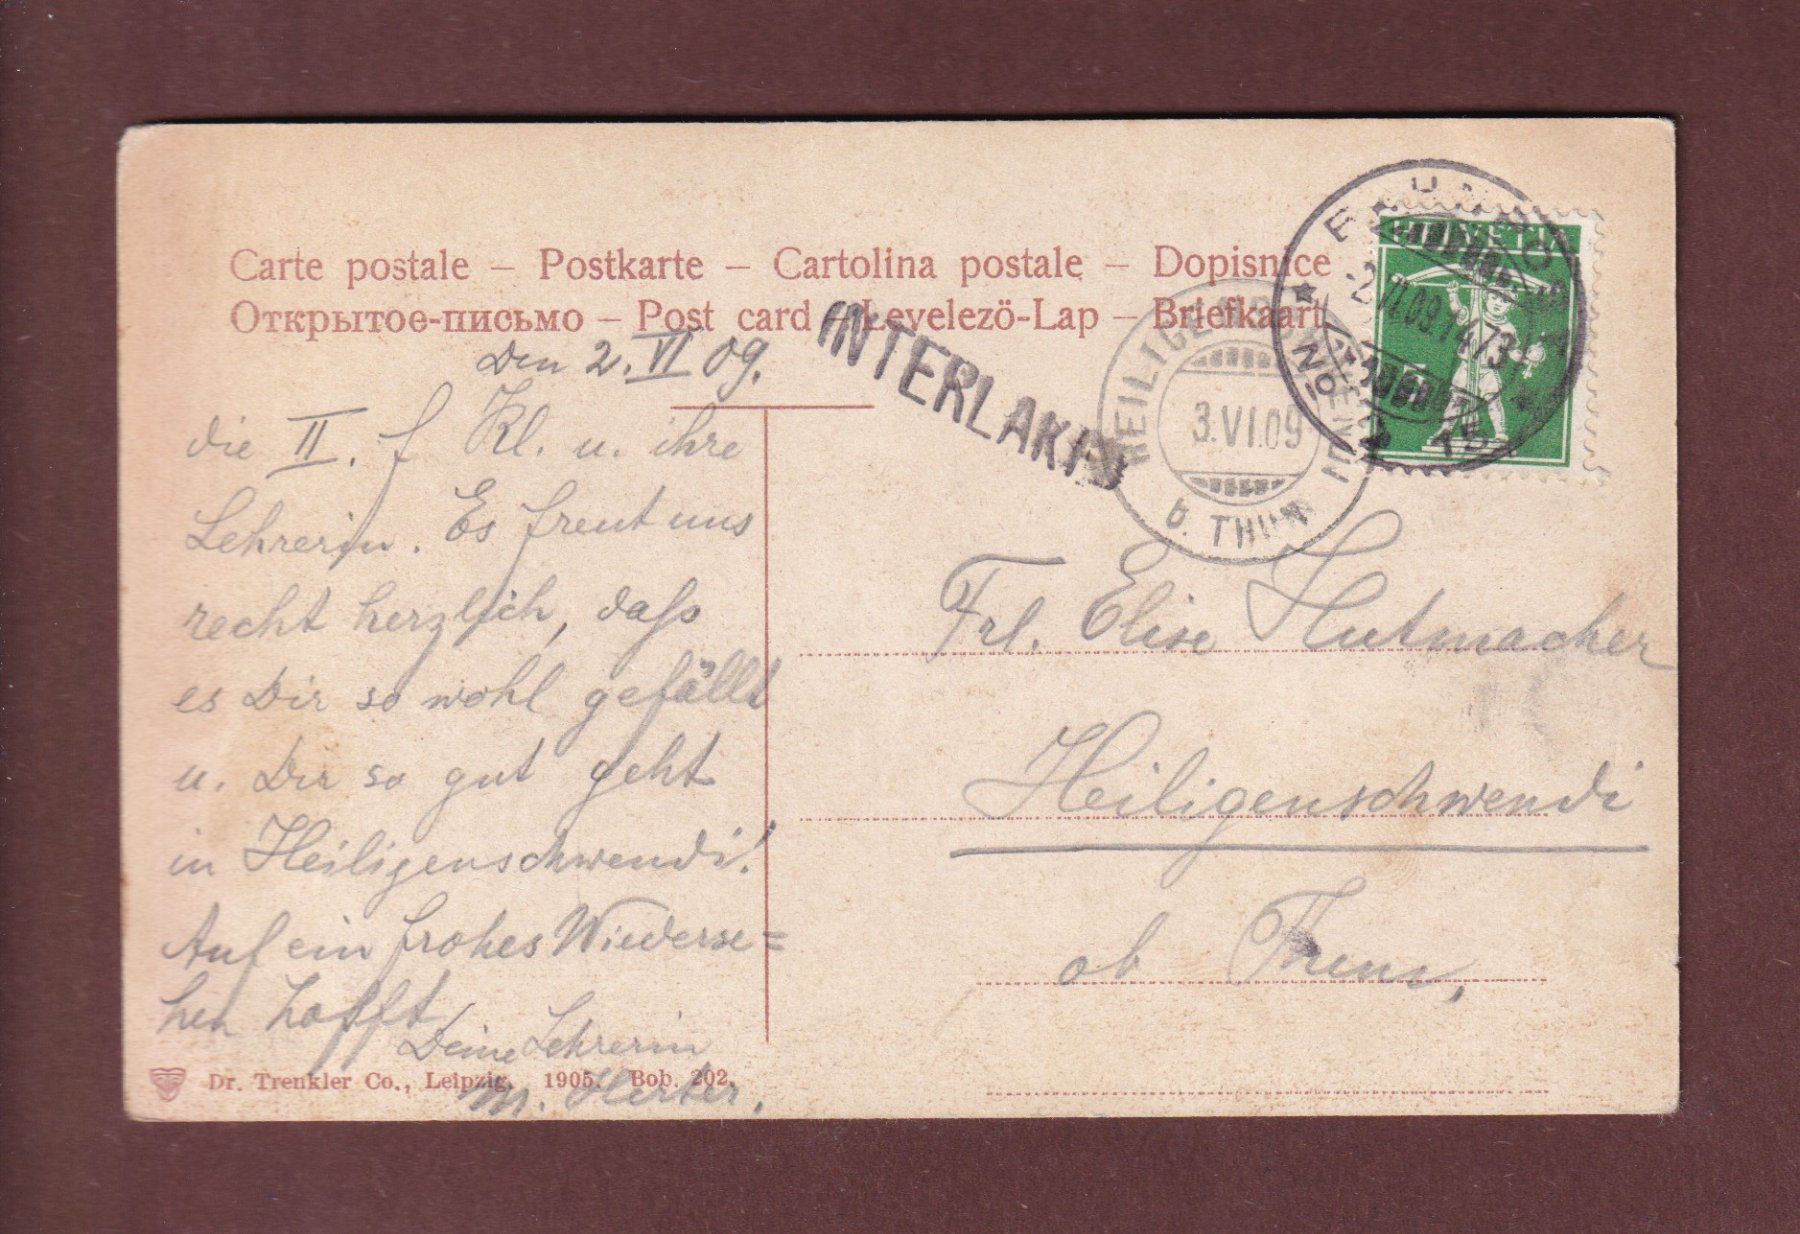 Carte postale – Postkarte – Cartolina postale – Dopisnice
Открытое-письмо – Post card – Levelezö-Lap – Briefkaart
INTERLAKEN
HEILIGENSCHWENDI
3.VI.09
b. THUN
HELVETIA
Den 2. VI 09.
die II. f Kl. u. ihre
Lehrerin. Es freut uns
recht herzlich, daſs
es Dir so wohl gefällt
u. Dir so gut geht
in Heiligenschwendi!
Auf ein frohes Wiederse=
hen hofft
Deine Lehrerin
M. Herter.
Frl. Elise Hutmacher
Heiligenschwendi
ob Thun,
Dr. Trenkler Co., Leipzig. 1905. Bob. 202.